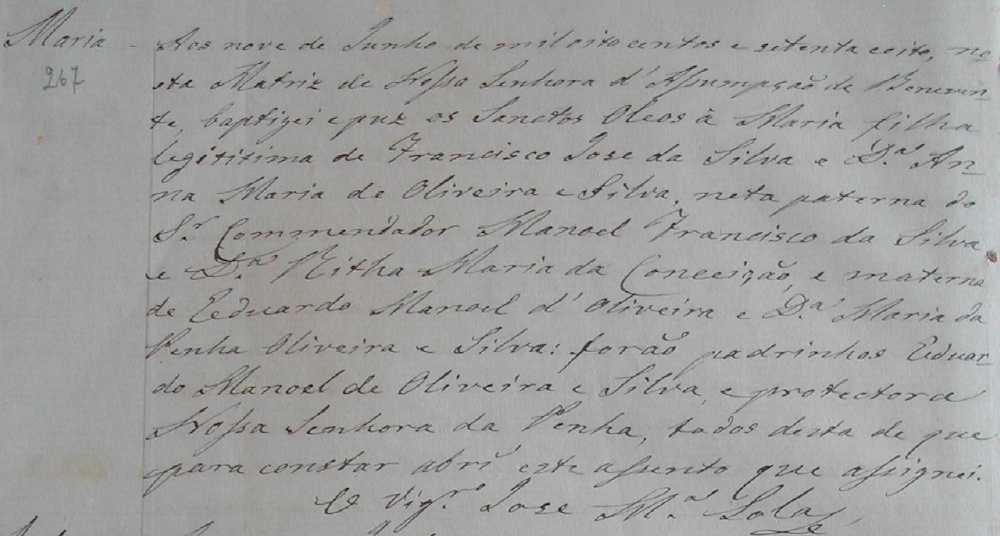 Maria - Aos nove de Junho de mil oito centos e setenta e oito, ne-
267
sta Matriz de Nossa Senhora d'Assumpção de Beneven-
te, baptizei e puz os Sanctos Oleos à Maria filha
legitima de Francisco Jose da Silva e D.ª An-
na Maria de Oliveira e Silva, neta paterna do
S.r Commendador Manoel Francisco da Silva
e D.ª Ritha Maria da Conceição, e materna
de Eeduardo Manoel d'Oliveira e D.ª Maria da
Penha Oliveira e Silva: forão padrinhos Eduar-
do Manoel de Oliveira e Silva, e protectora
Nossa Senhora da Penha, todos desta de que
para constar abri este assento que assignei.
O Vigr.º Jose M.ª